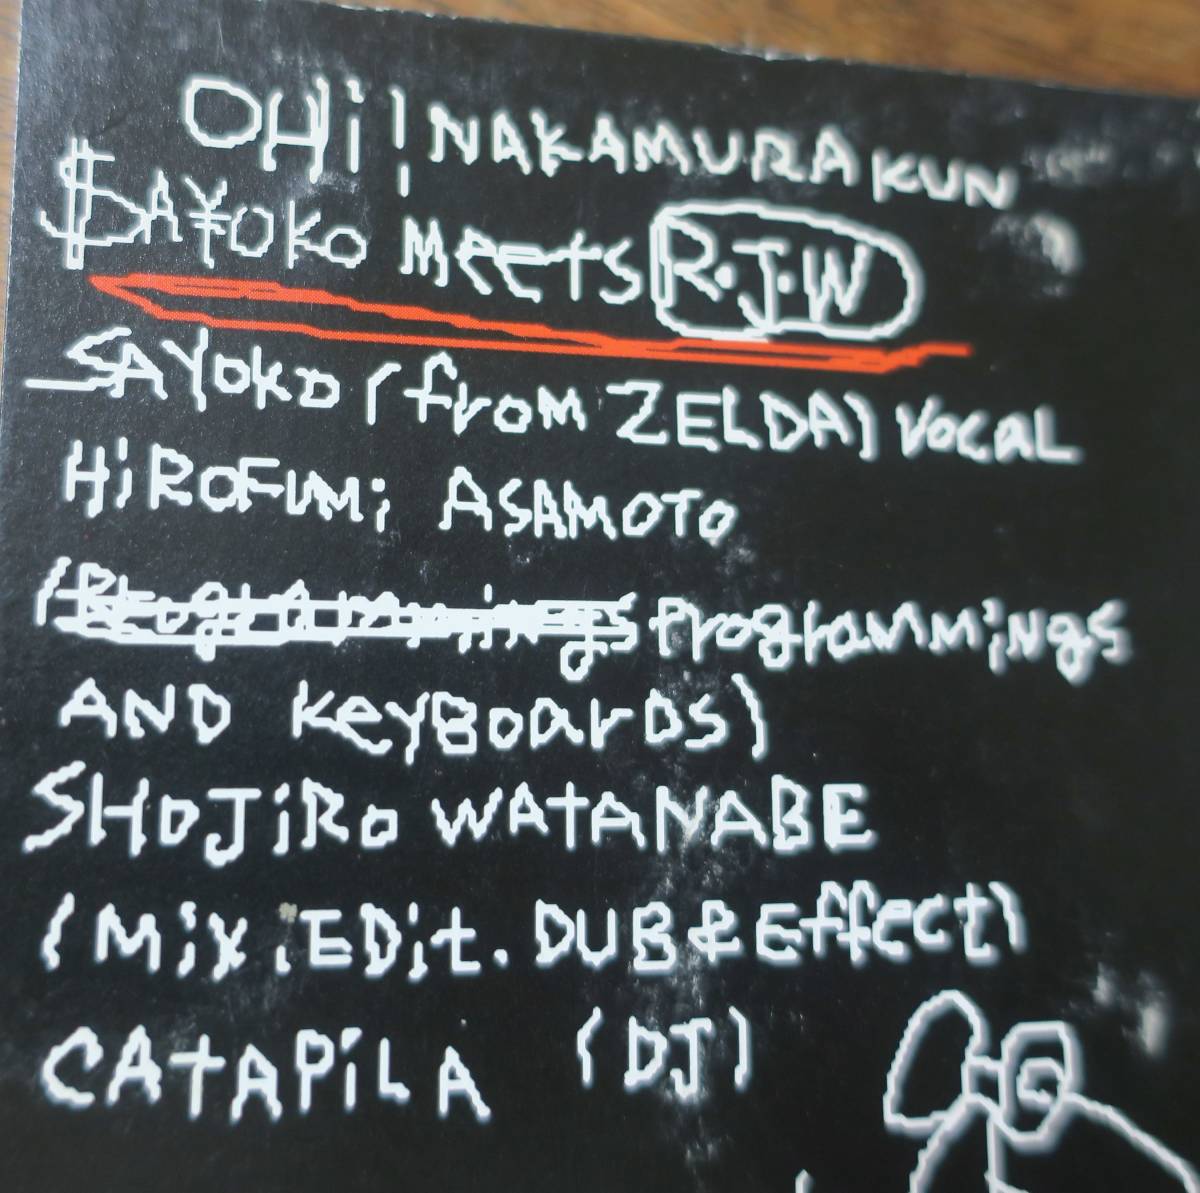 OHi! NAKAMURA KUN
$A¥OKO Meets R.J.W
SAYOKO (from ZELDA) VocaL
HiROFUMi ASAMOTO
(Programmings Programmings
AND KeyBoarDs)
SHOJiRo WATANABE
(Mix.EDit. DUB & Effect)
CAtAPiLA (DJ)